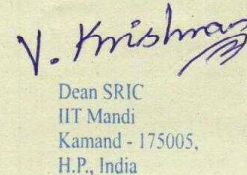 V. Krishnan
Dean SRIC
IIT Mandi
Kamand - 175005,
H.P., India